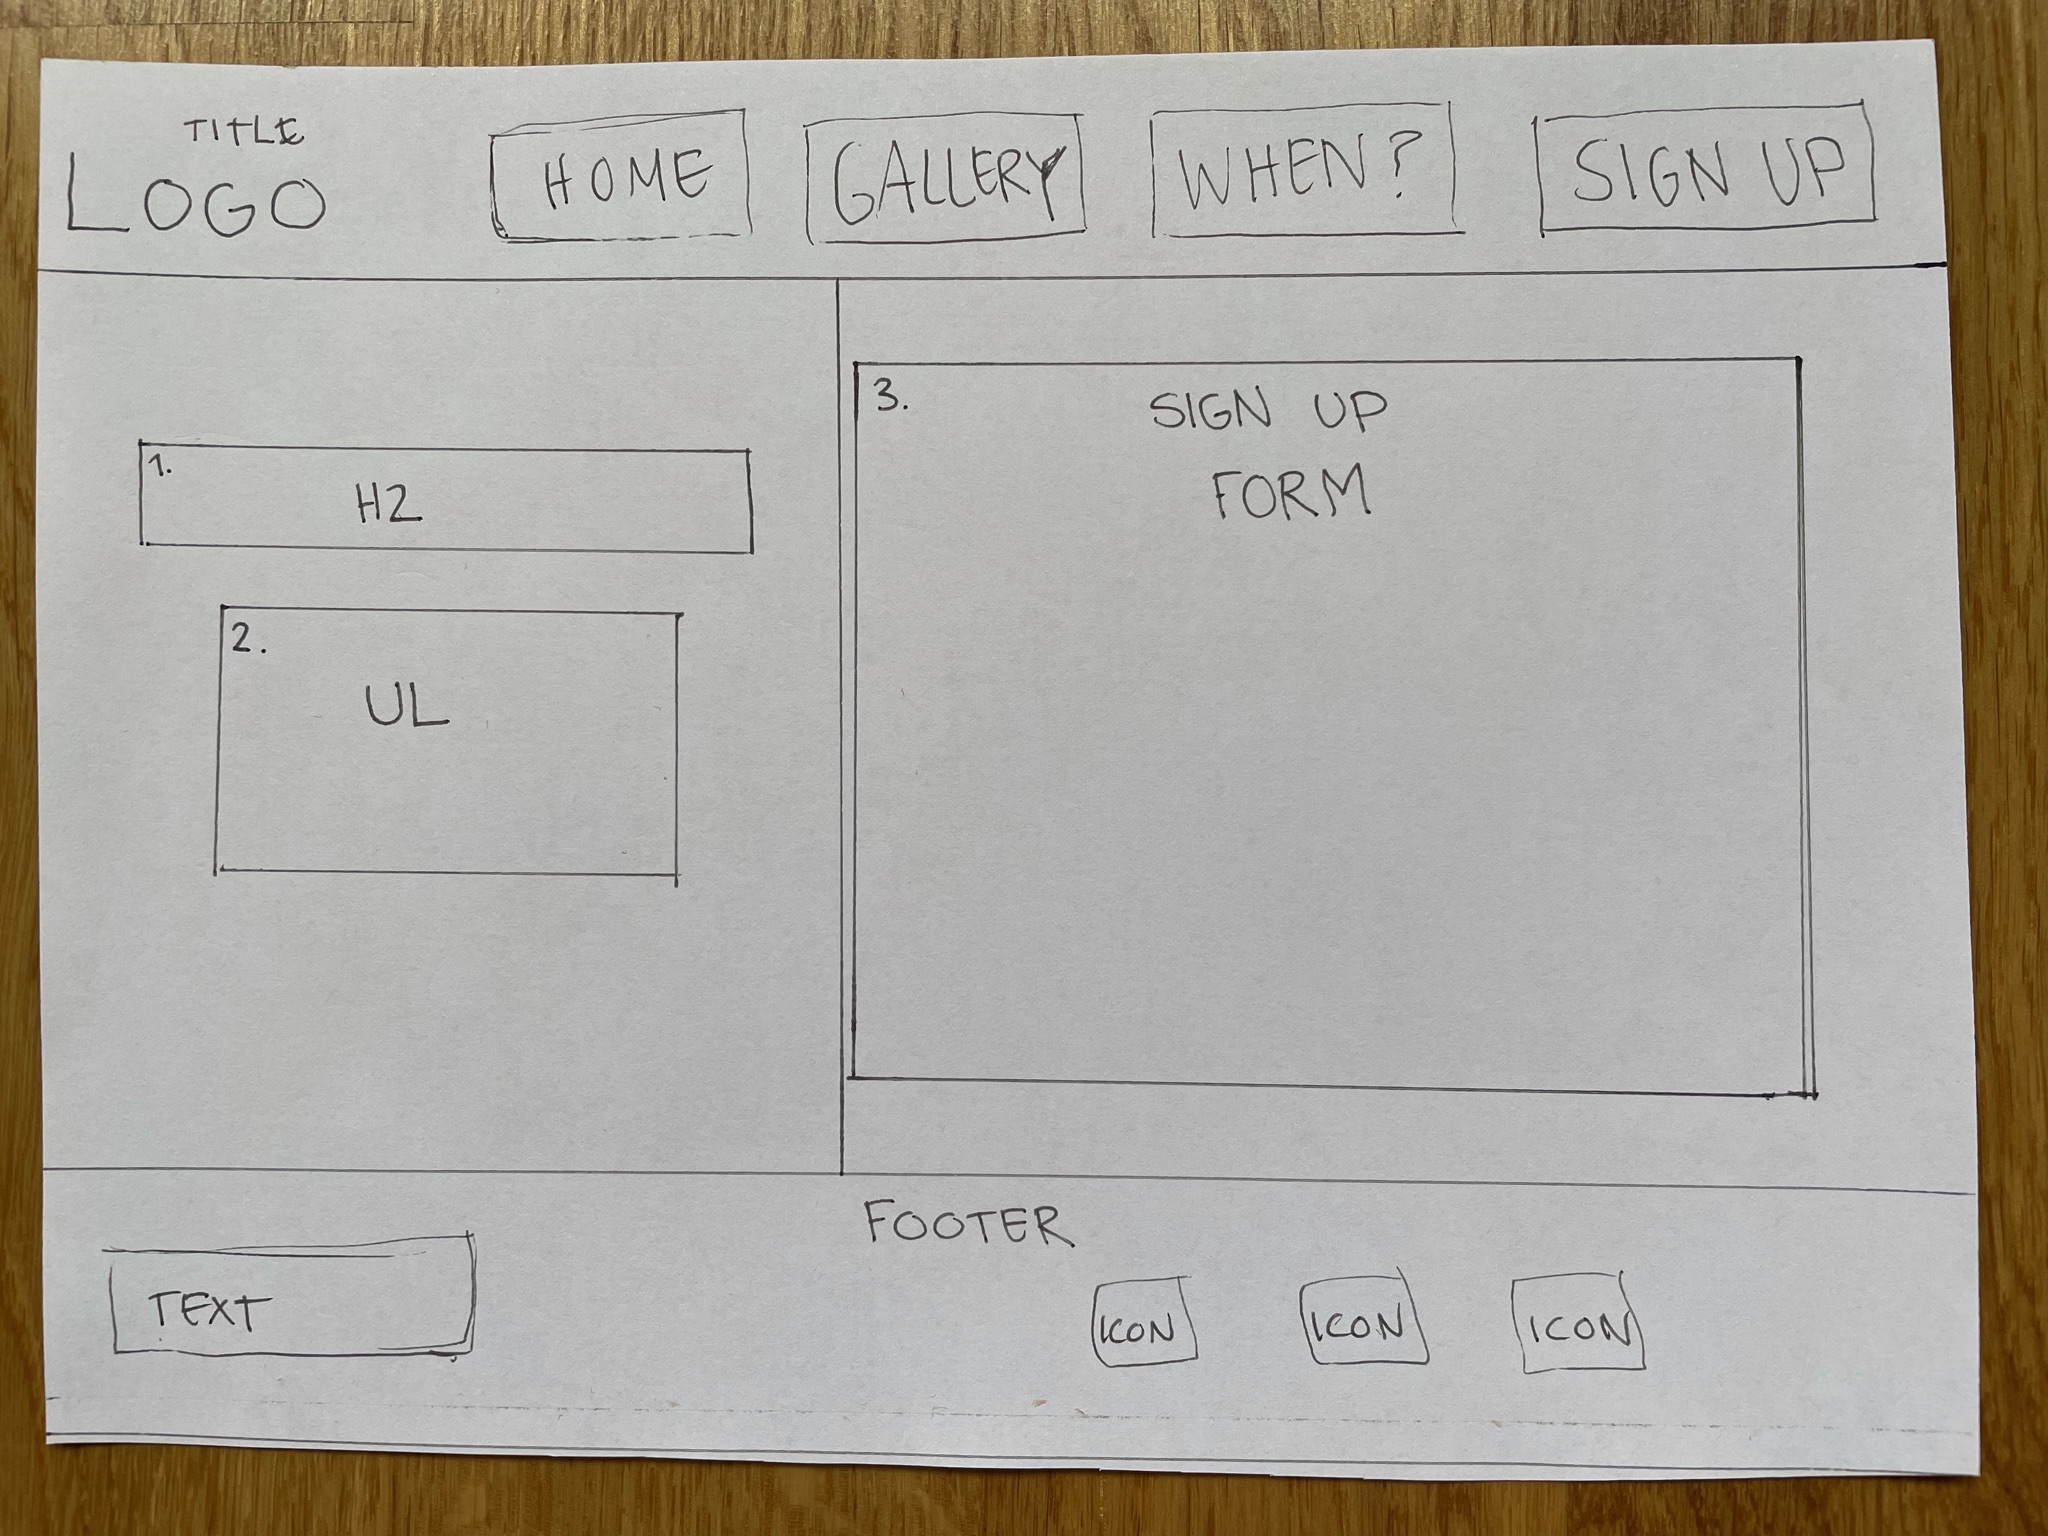 TITLE
LOGO
HOME
GALLERY
WHEN?
SIGN UP
1.
H2
2.
UL
3.
SIGN UP
FORM
FOOTER
TEXT
ICON
ICON
ICON